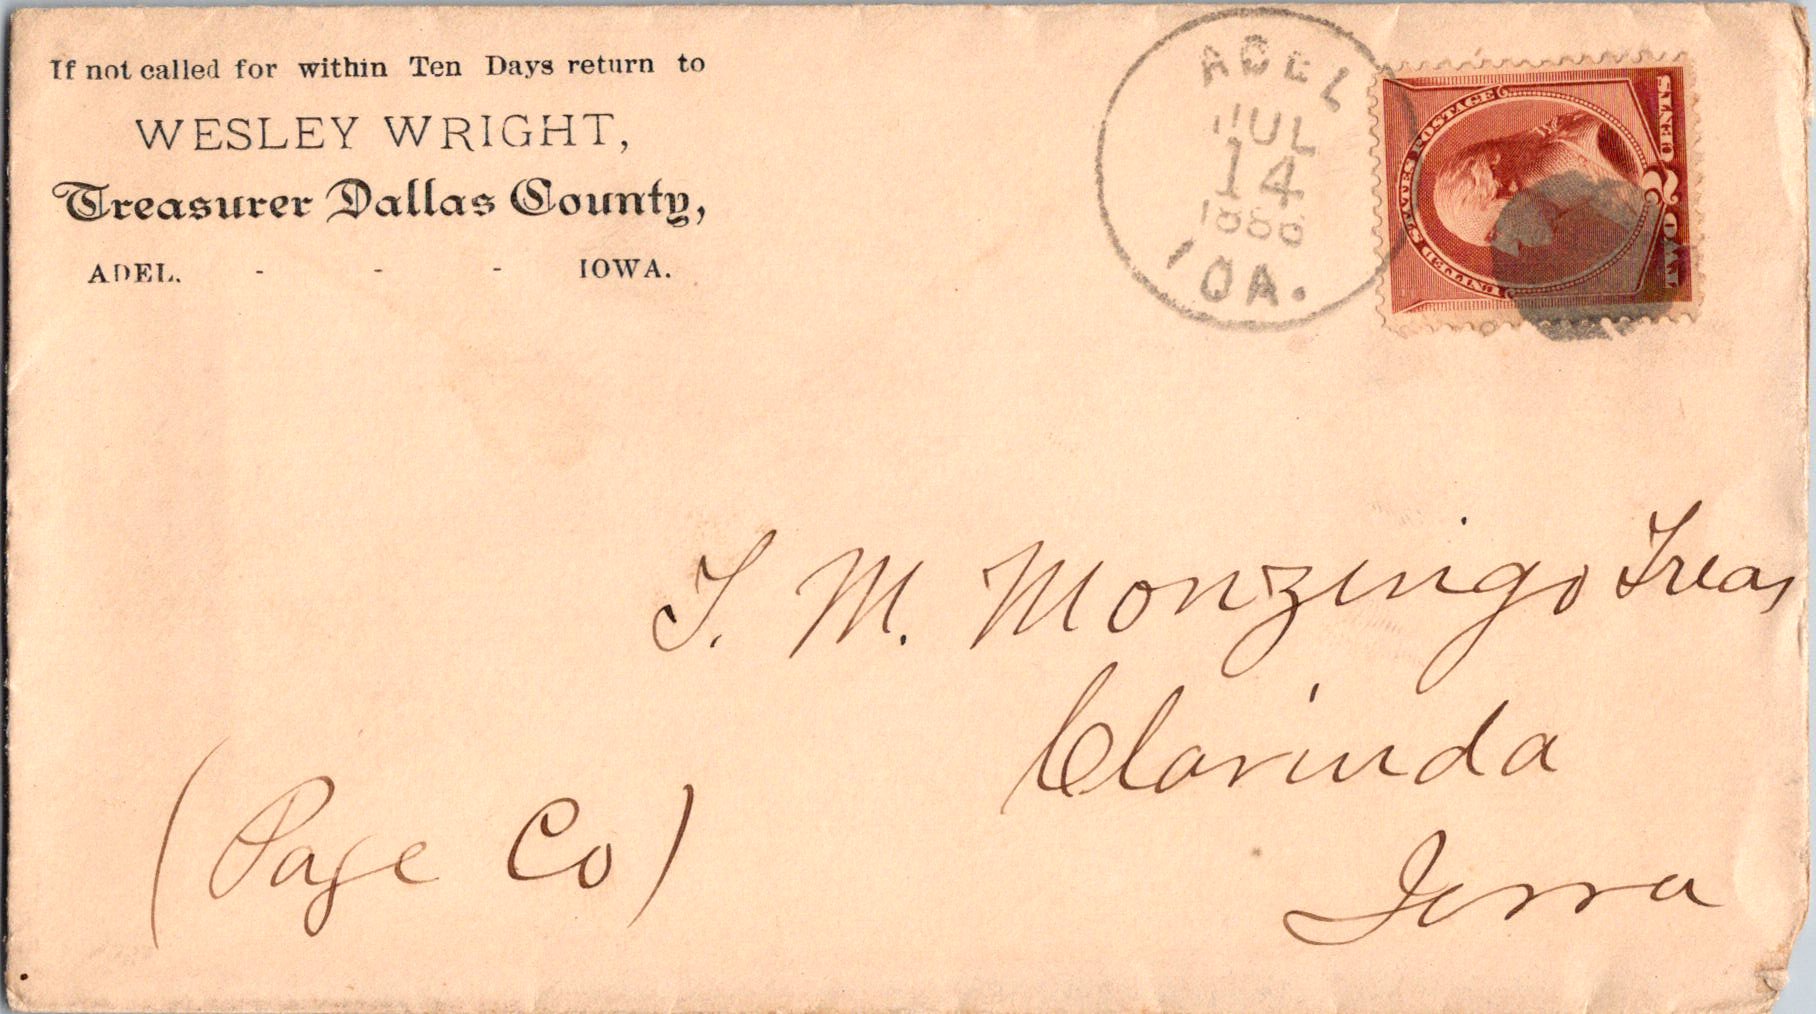 If not called for within Ten Days return to
WESLEY WRIGHT,
Treasurer Dallas County,
ADEL. - - - IOWA.
ADEL
JUL
14
1886
IOA.
UNITED STATES POSTAGE
2
T. M. Monzingo Treas
Clarinda
Iowa
(Page Co)